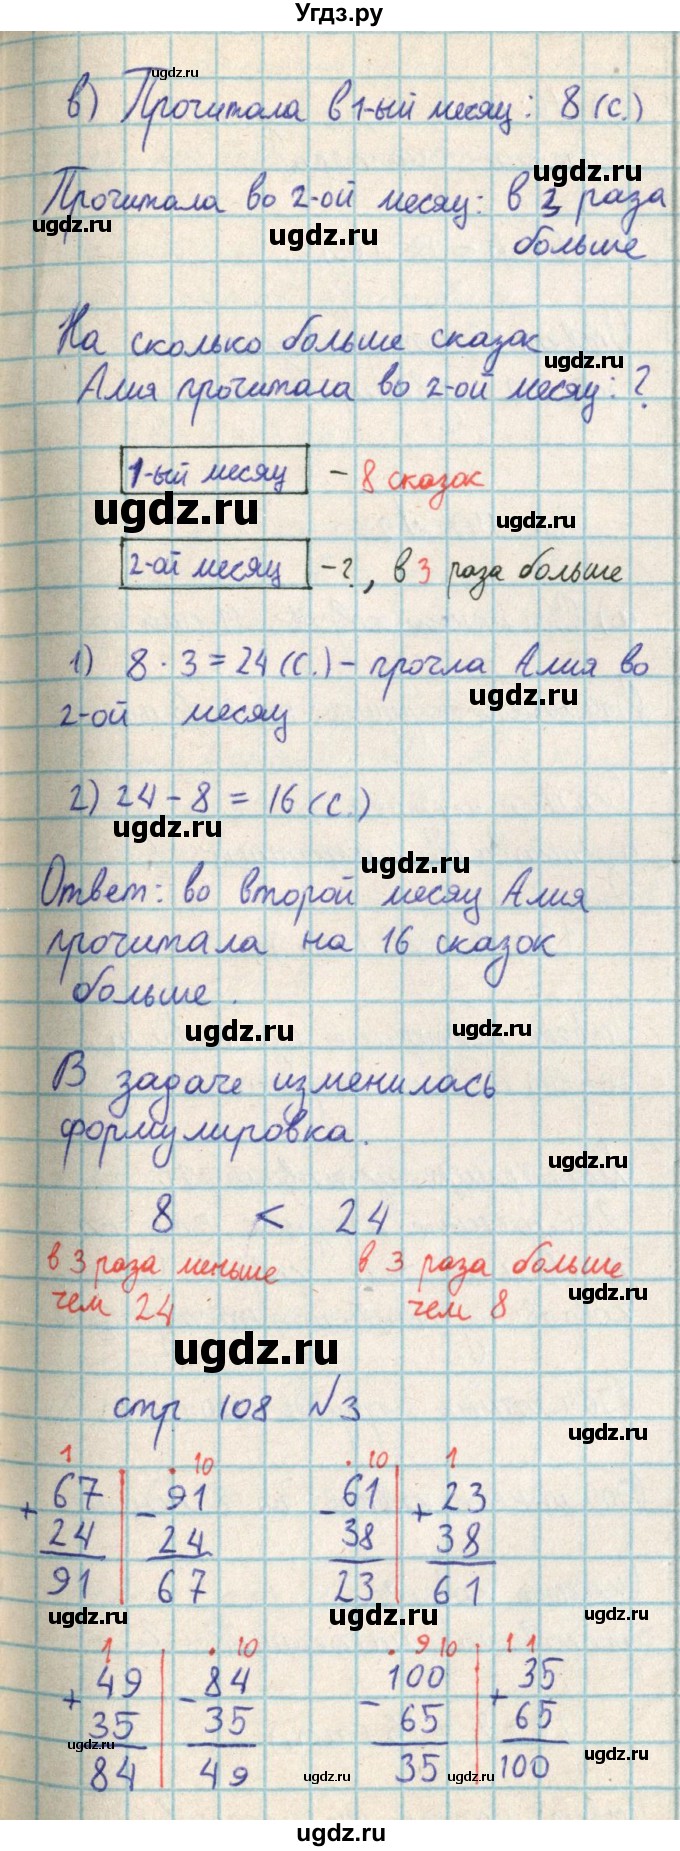 Угдз.ру
ugdz.ru
в) Прочитала в 1-ый месяц: 8 (с.)
ugdz.ru
Прочитала во 2-ой месяц: в 3 раза
ugdz.ru
ugdz.ru
больше
На сколько больше сказок
ugdz.ru
Алия прочитала во 2-ой месяц: ?
1-ый месяц - 8 сказок
ugdz.ru
ugdz.ru
2-ой месяц -?, в 3 раза больше
1) 8 · 3 = 24 (с.) - прочла Алия во
ugdz.ru
2-ой месяц
2) 24 - 8 = 16 (с.)
ugdz.ru
ugdz.ru
Ответ: во второй месяц Алия
прочитала на 16 сказок
больше.
ugdz.ru
ugdz.ru
В задаче изменилась
формулировка.
ugdz.ru
8 < 24
в 3 раза меньше в 3 раза больше
ugdz.ru
чем 24 чем 8
ugdz.ru
стр 108 №3
ugdz.ru
1 . 10 . 10 1
+ 67 - 91 - 61 + 23
24 24 38 38
91 67 23 61
ugdz.ru ugdz.ru ugdz.ru
1 . 10 . 9 10 1 1
+ 49 - 84 - 100 + 35
35 35 65 65
ugdz.ru ugdz.ru
84 49 35 100
ugdz.ru ugdz.ru
ugdz.ru